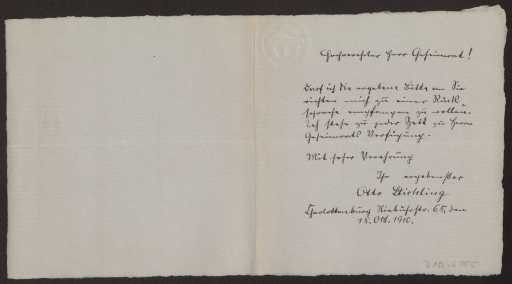 Hochverehrter Herr Geheimrat!
Darf ich die ergebene Bitte an Sie
richten mich zu einer Rück-
sprache empfangen zu wollen.
Ich stehe zu jeder Zeit zu Herrn
Geheimrats Verfügung.
Mit hoher Verehrung
Ihr ergebenster
Otto
Charlottenburg Niebuhrstr. 65, den
18. Okt. 1910.